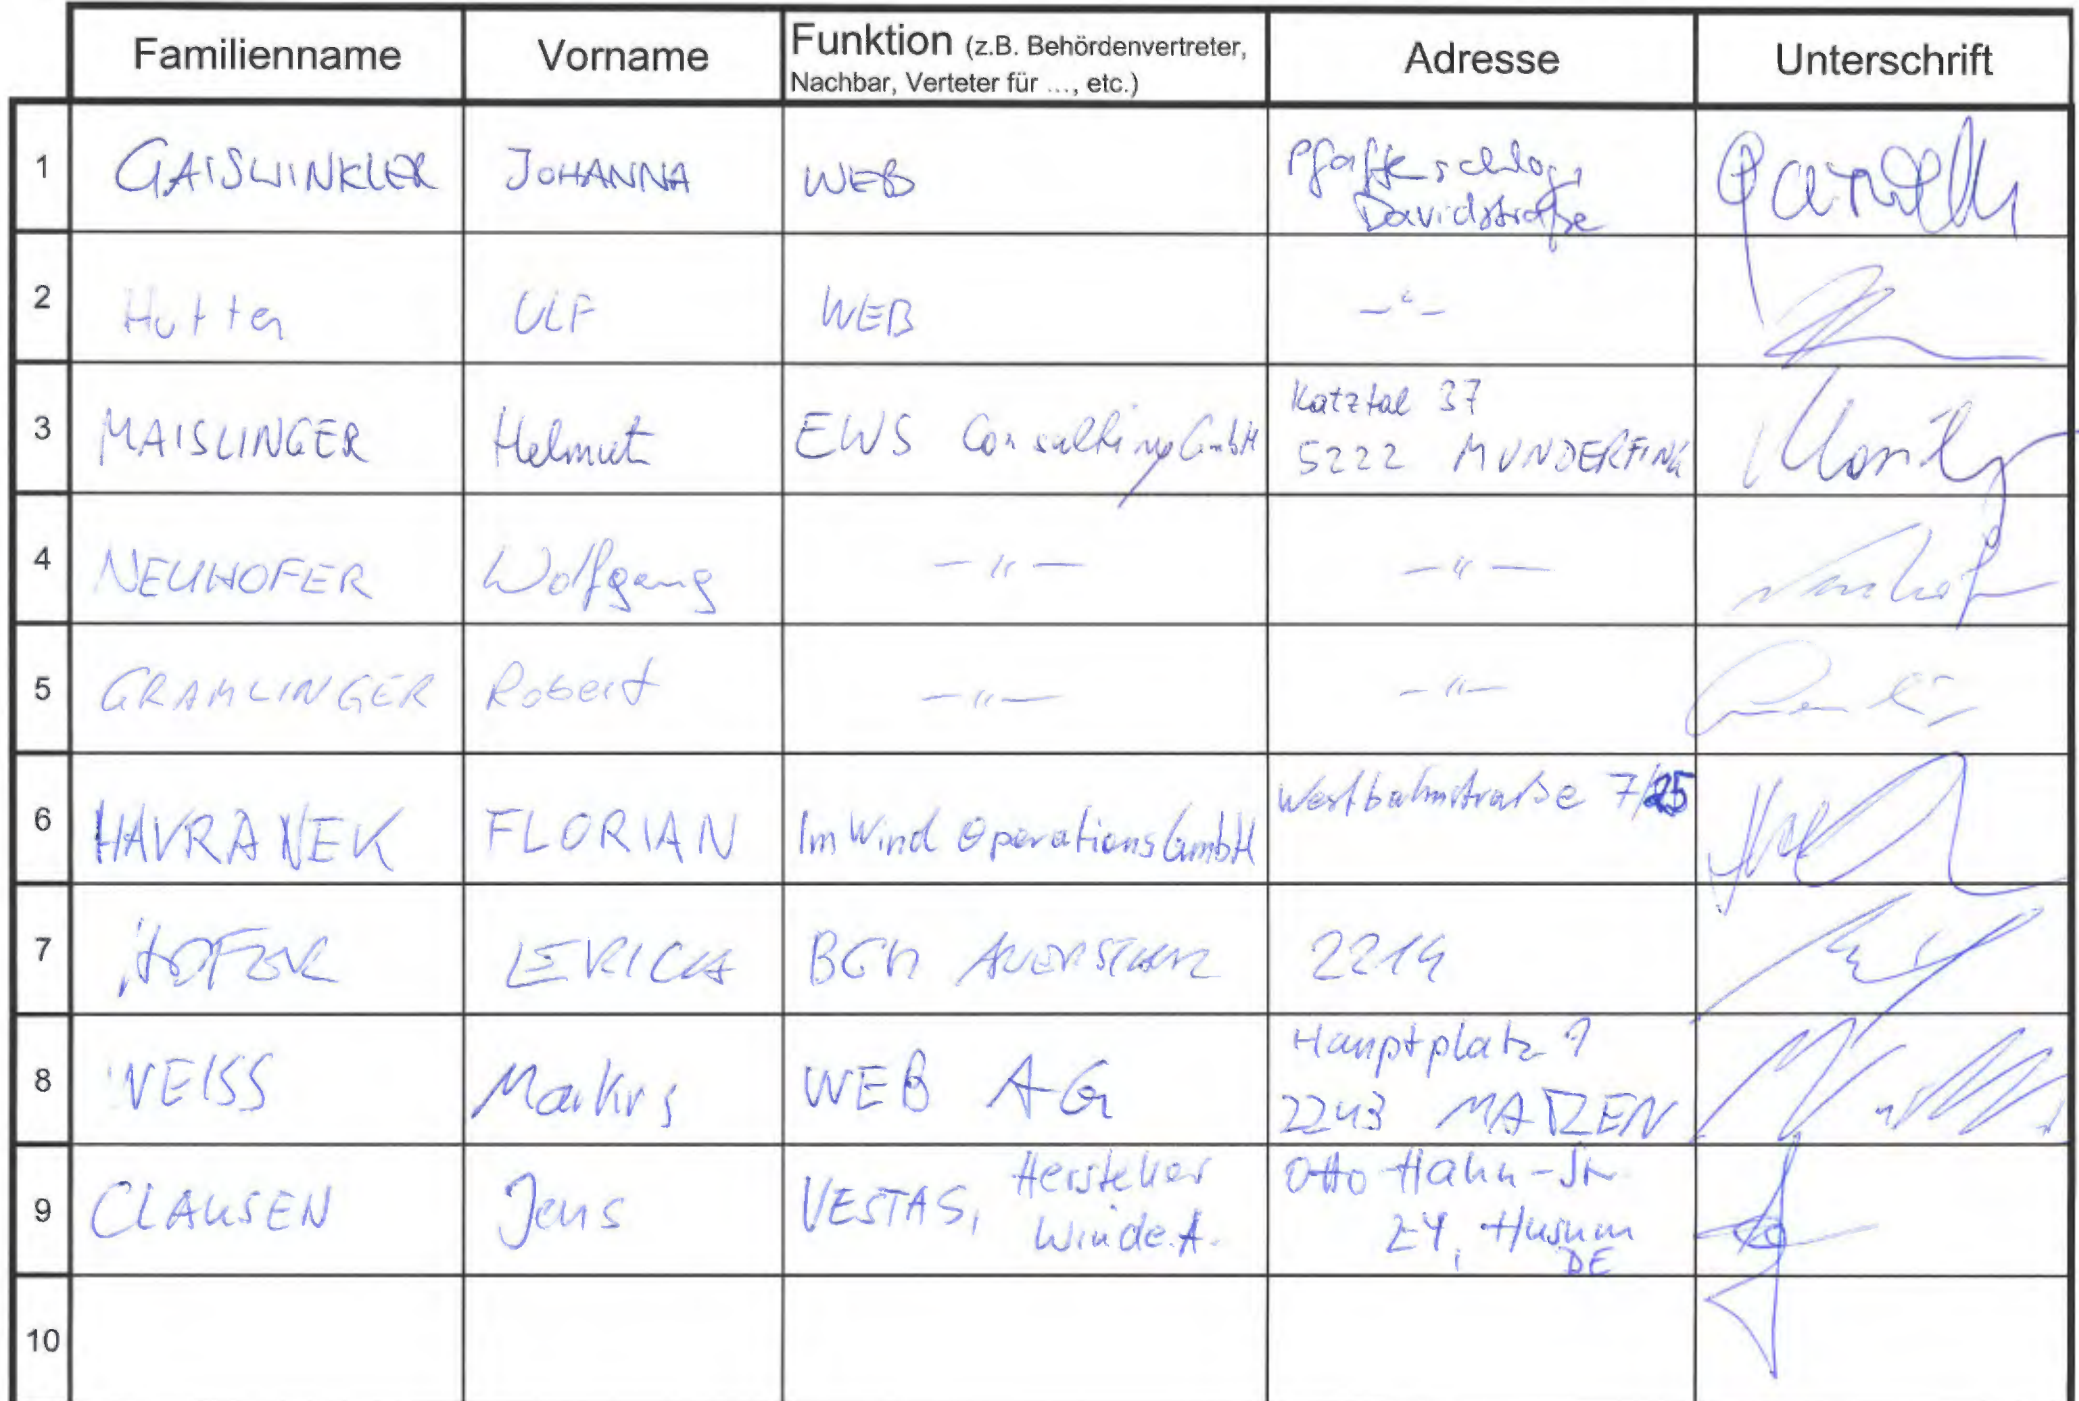 Familienname Vorname Funktion (z.B. Behördenvertreter, Nachbar, Verteter für ..., etc.) Adresse Unterschrift
1 GAISWINKLER JOHANNA WEB Pfaffenschlag, Davidstraße
2 Hutter ULF WEB –"–
3 MAISLINGER Helmut EWS Consulting GmbH Katztal 37
5222 MUNDERFING
4 NEUHOFER Wolfgang –"– –"–
5 GRAMLINGER Robert –"– –"–
6 HAVRANEK FLORIAN ImWind Operations GmbH Westbahnstraße 7/
7 HOFER ERICH BGM AUERSTHAL 2214
8 WEISS Markus WEB AG Hauptplatz 1
2243 MATZEN
9 CLAUSEN Jens VESTAS, Hersteller
Winde.A. Otto-Hahn-Str.
24, Husum
DE
10